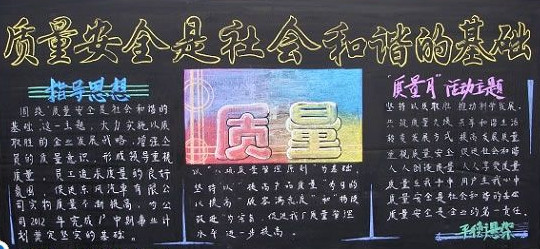 质量安全是社会和谐的基础
指导思想
围绕“质量安全是社会和谐的
基础”这一主题，大力实施以质
取胜的企业发展战略，增强全
员的质量意识，形成领导重视
质量、员工追求质量的良好
氛围，促进东风汽车有限公
司实物质量不断提高，为公
司2012年完成广中期事业计
划奠定坚实的基础。
质量
以“八项质量管理原则”为基础，
坚持以“提高产品质量”为目的
以提高“顾客满意度”和“持续
改进”为方向，促进我厂质量管理
水平进一步提高。
“质量月”活动主题
坚持以质取胜 推动科学发展
共筑质量 共享和谐生活
转变发展方式 提高发展质量
重视质量安全 促进社会和谐
人人创造质量 人人享受质量
质量在我手中 用户在我心中
质量安全是社会和谐的基础
质量安全是企业的第一责任